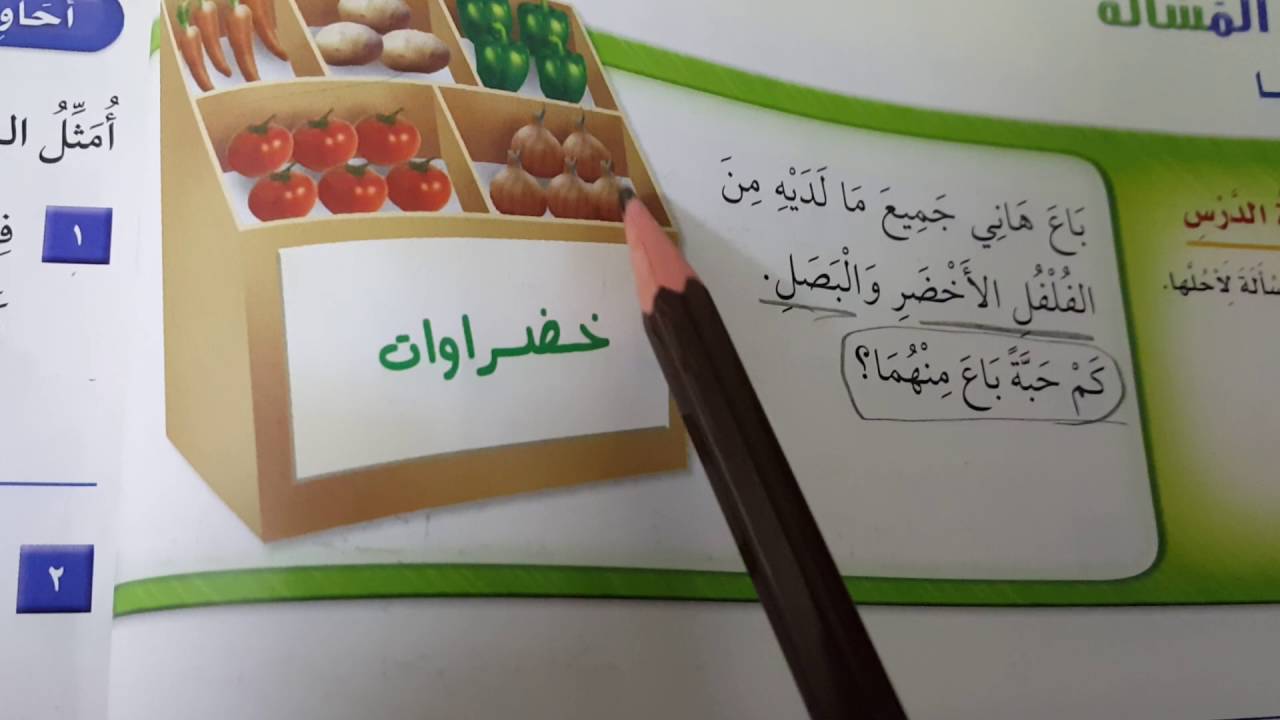 المَسْأَلَة
الدَّرْسِ
لِأَحُلَّها.
بَاعَ هَانِي جَمِيعَ مَا لَدَيْهِ مِنَ
الفُلْفُلِ الأَخْضَرِ وَالْبَصَلِ.
كَمْ حَبَّةً بَاعَ مِنْهُمَا؟
خضراوات
أُمَثِّلُ
١
٢